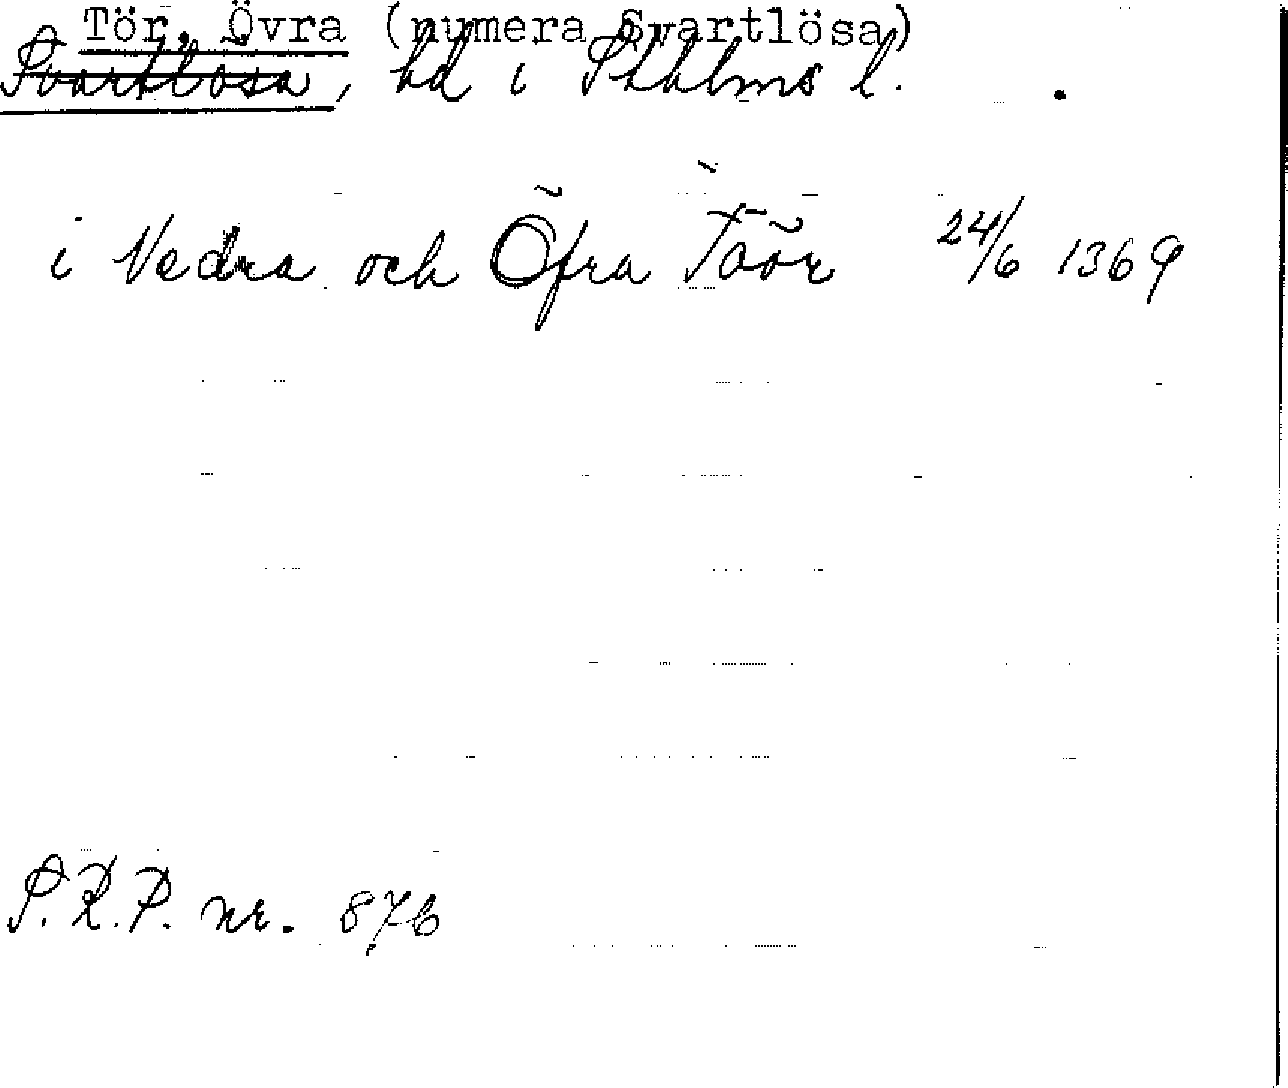 Tör, Övra (numera Svartlösa)
Svartlösa, hd i Sthlms l.
i Nedra och Öfra Töör 24/6 1369
S.R.P. nr. 876